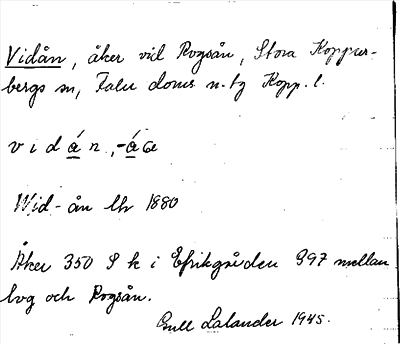 Vidån, åker vid Rogsån, Stora Koppar-
bergs sn, Falu doms. n. tg Kopp. l.
v i d á n, -áa
Wid-ån lhr 1880
Åker 350 S k i Efrikgården 997 mellan
lvg och Rogsån.
Gull Lalander 1945.